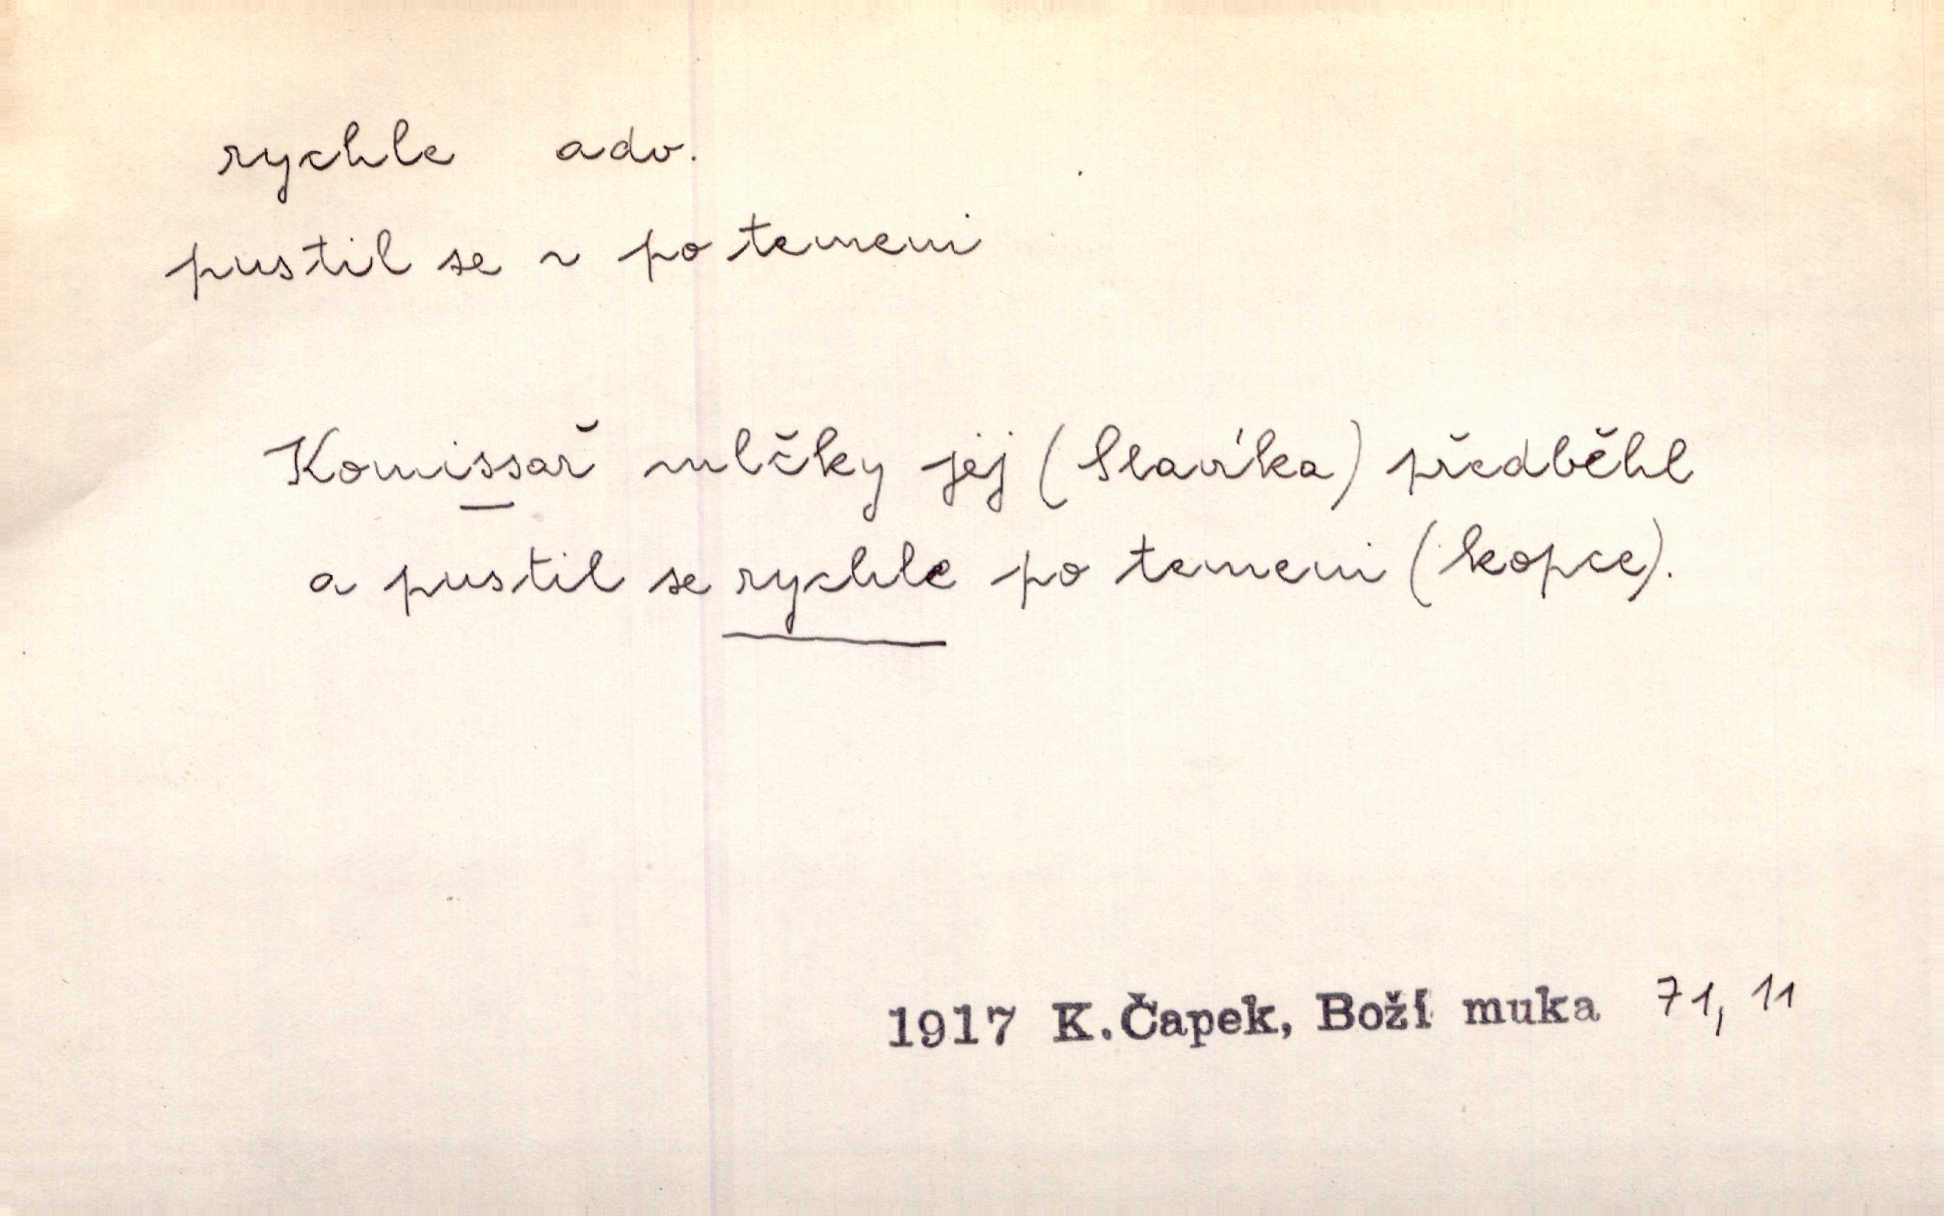 rychle adv.
pustil se ~ po temeni
Komissař mlčky jej (Slavíka) předběhl
a pustil se rychle po temeni (kopce).
1917 K.Čapek, Boží muka 71, 11